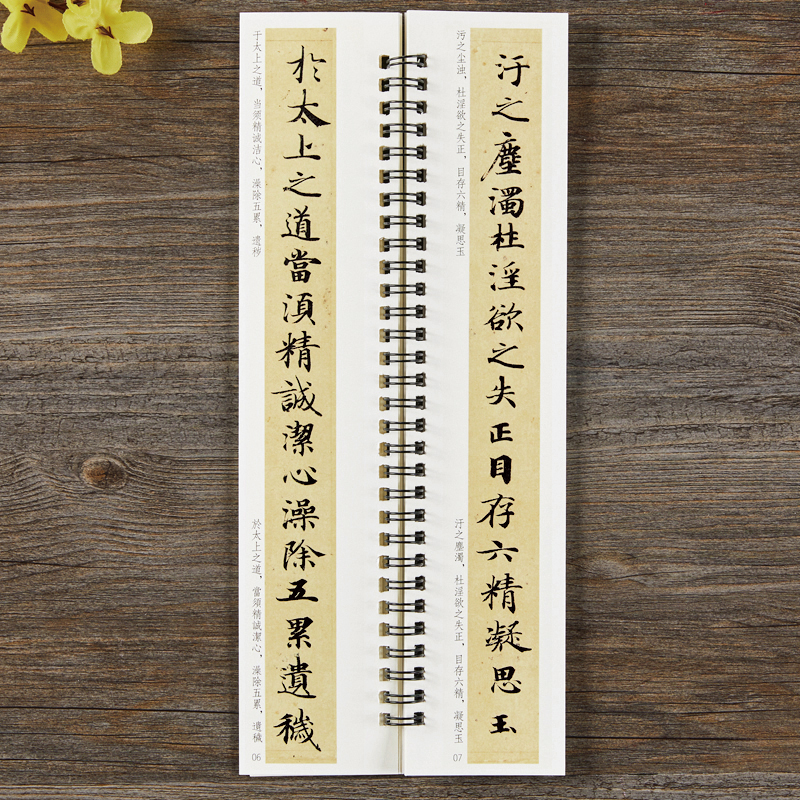 于太上之道，当须精诚洁心，澡除五累，遗秽
於太上之道當須精誠潔心澡除五累遺穢
於太上之道，當須精誠潔心，澡除五累，遺穢
06
污之尘浊，杜淫欲之失正，目存六精，凝思玉
汙之塵濁杜淫欲之失正目存六精凝思玉
汙之塵濁，杜淫欲之失正，目存六精，凝思玉
07